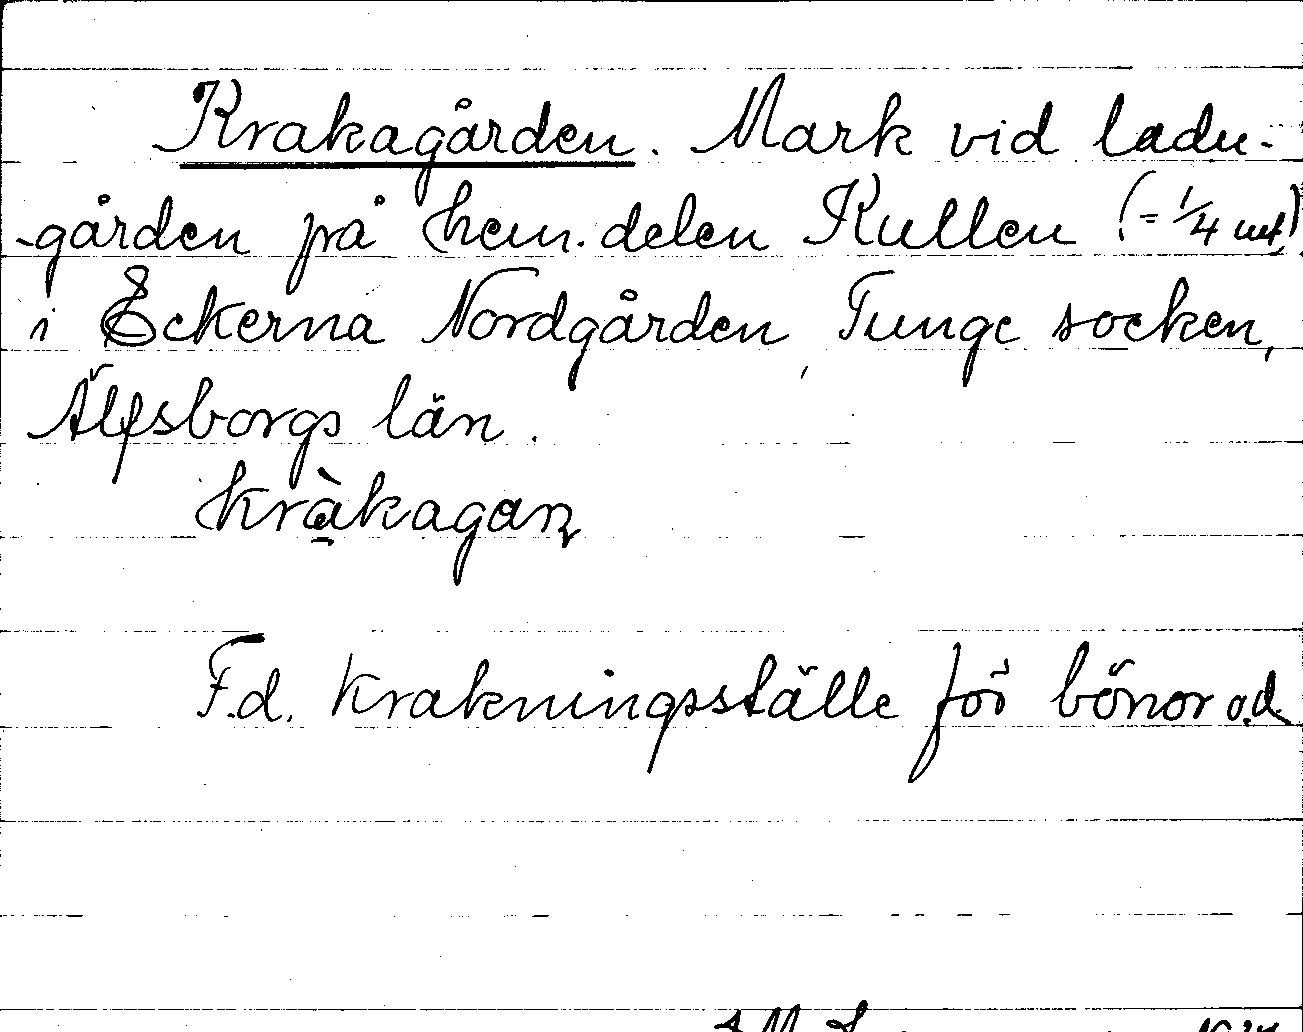 Krakagården. Mark vid ladu-
-gården på hem.delen Kullen (=1/4 mt)
i Eckerna Nordgården, Tunge socken,
Älfsborgs län.
kràkagan
F.d. krakningsställe för bönor o.d.